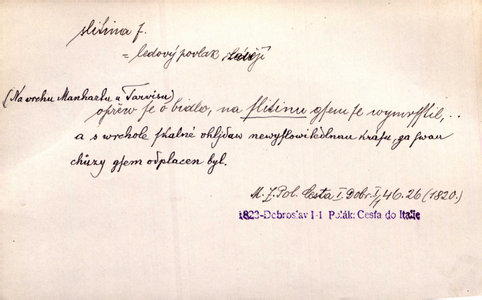 slitina f.
= ledový povlak
(Na vrchu Manhartu u Tarvisu)
opřew se o bidlo, na slitinu gsem se wymrsstil, ..
a s wrchole skalné ohljdaw newyslowitedlnau krásu, za swau
chůzy gsem odplacen byl.
M. Z. Pol. Cesta I. Dobr. I, 46. 26 (1820.)
1823-Dobroslav I-1 Polák: Cesta do Italie